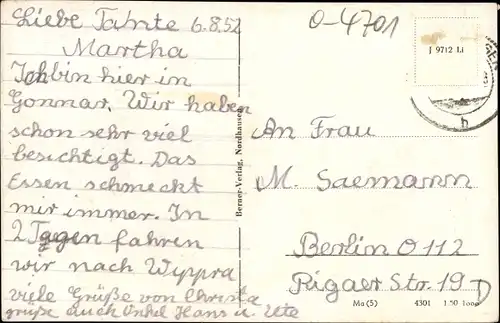 Liebe Tahte 6.8.52
Martha
Ich bin hier in
Gonnar. Wir haben
schon sehr viel
besichtigt. Das
Essen schmeckt
mir immer. In
2 Tagen fahren
wir nach Wyppra
viele Grüße von Christa
grüße auch Onkel Hans u. Ute
Berner-Verlag, Nordhausen
O-4701
J 9712 Li
h
An Frau
M. Saemann
Berlin O 112
Rigaer Str. 19 D
Ma (5) 4301 1 50 1000